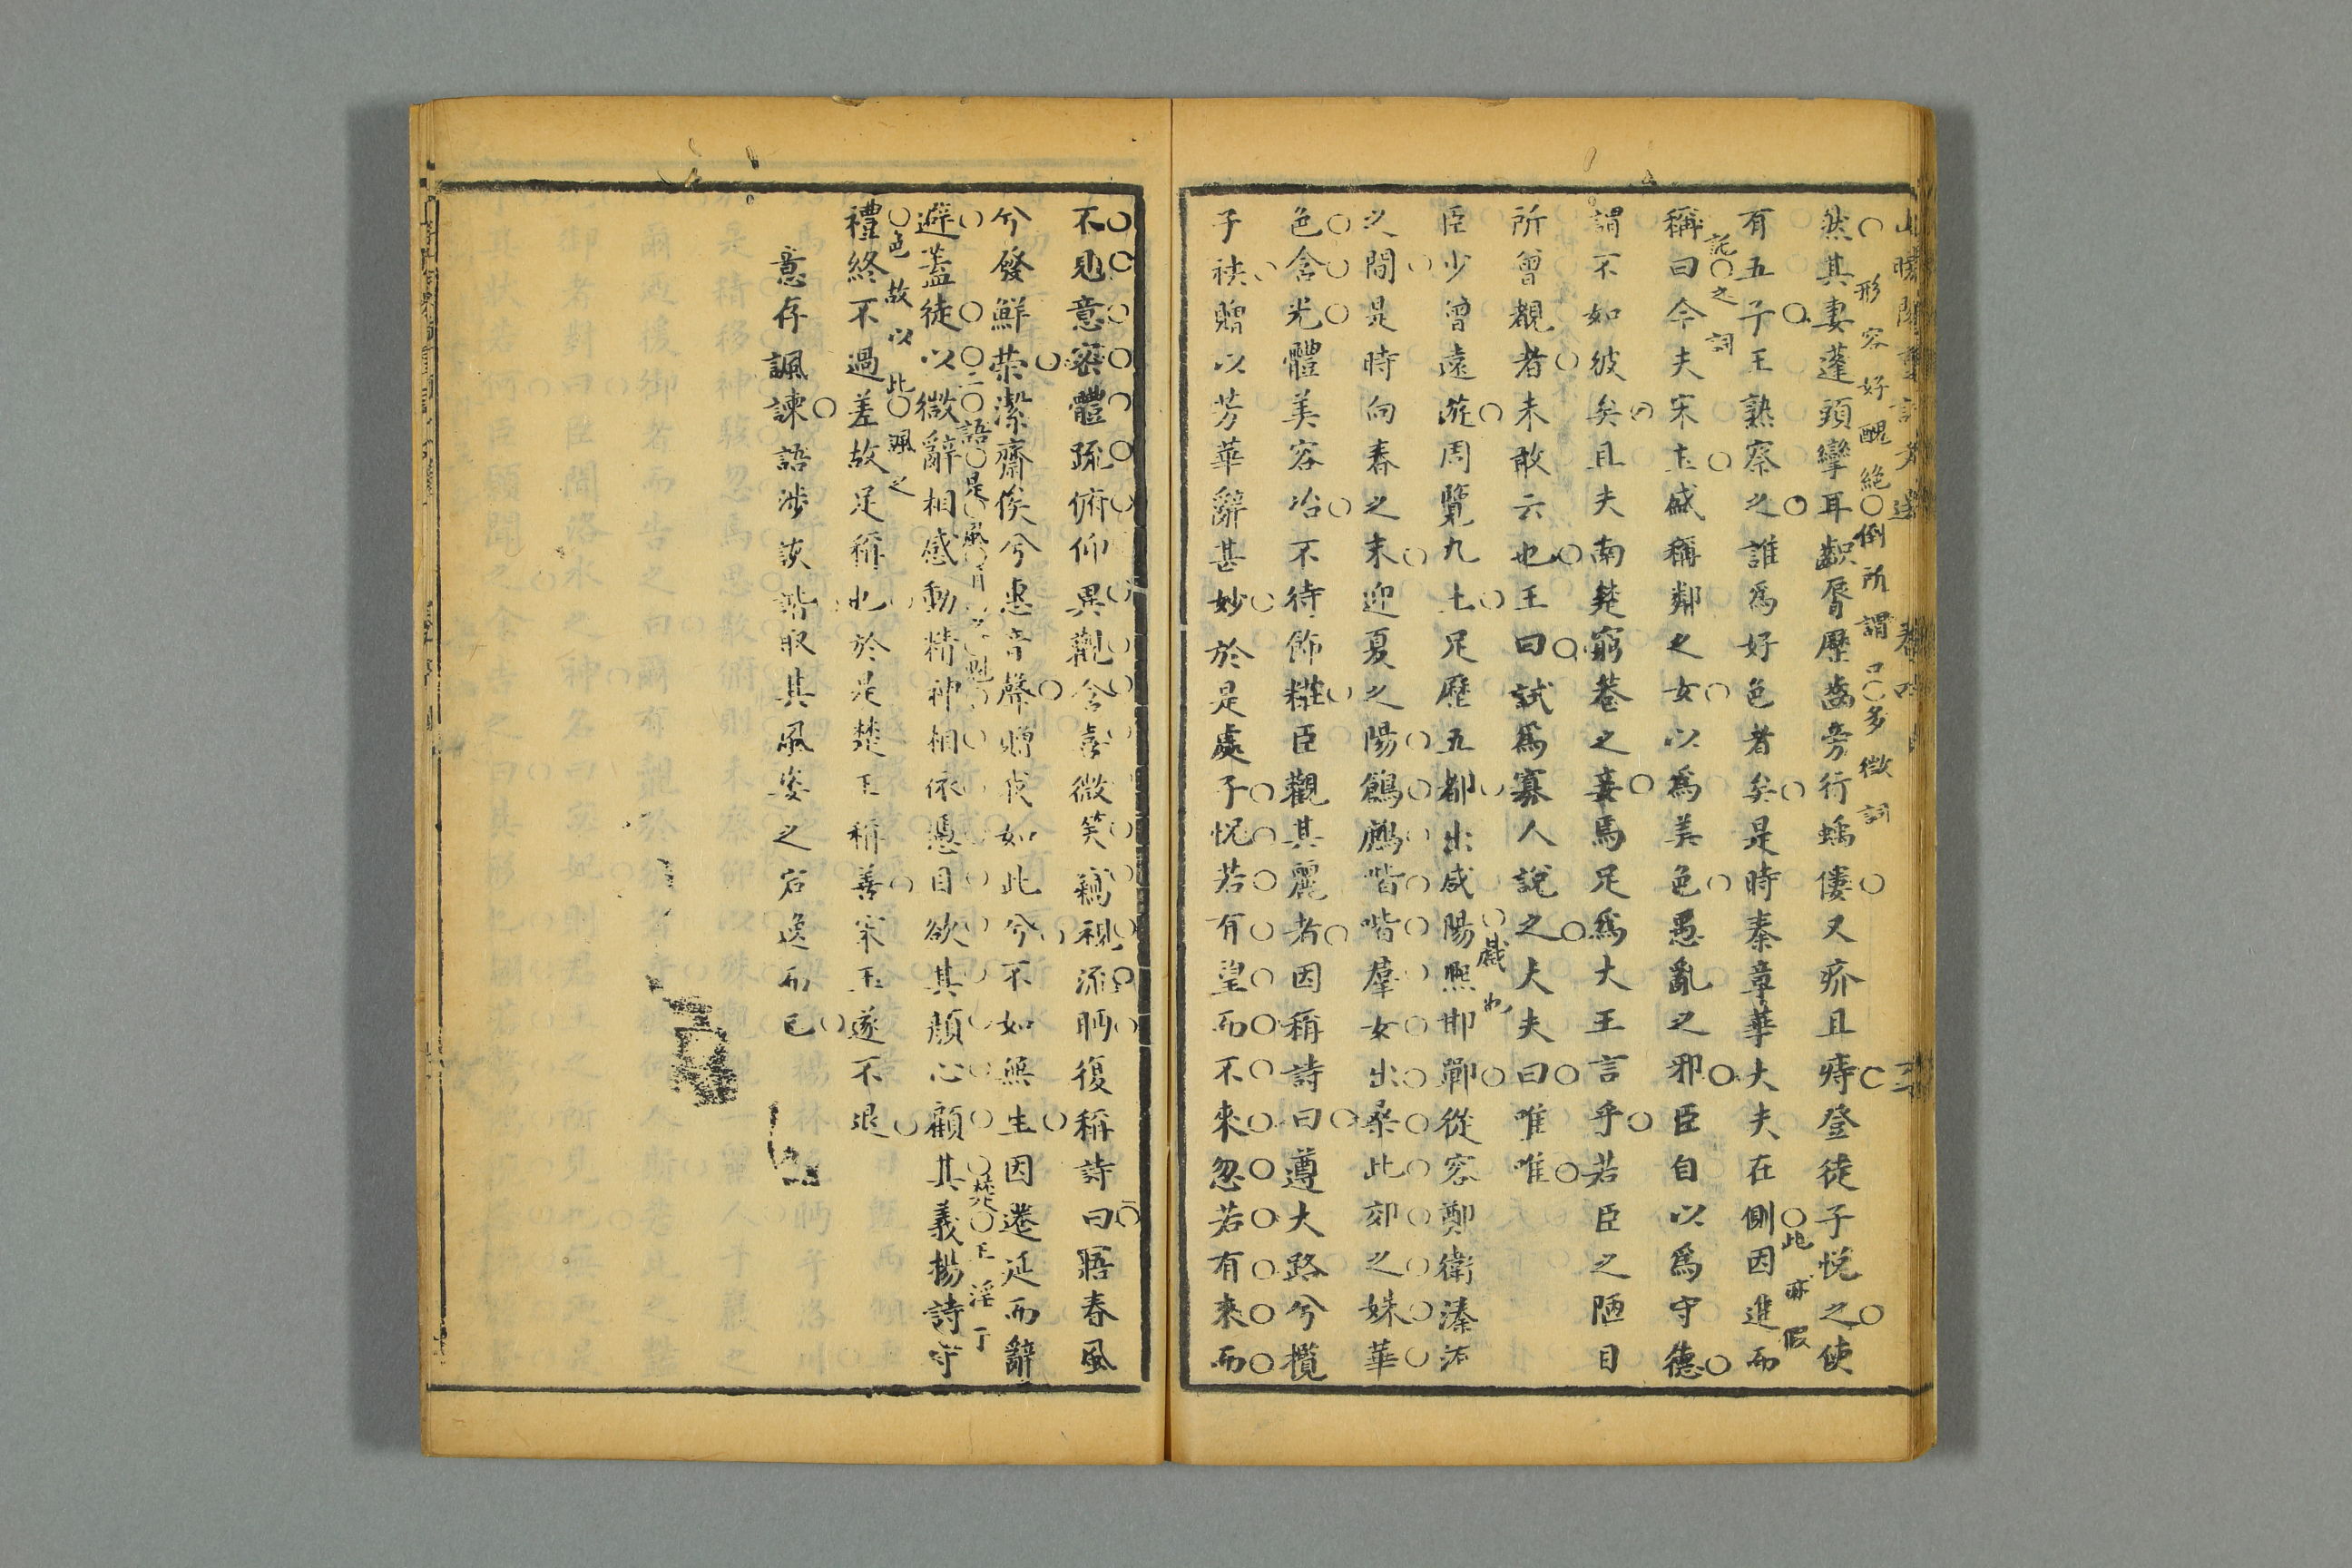 形容好醜絕倒所謂口多微詞
然其妻蓬頭攣耳齞脣歷齒旁行踽僂又疥且痔登徒子悅之使
有五子王熟察之誰爲好色者矣是時秦章華大夫在側因進而
此亦假
託之詞
稱曰今夫宋玉盛稱鄰之女以爲美色愚亂之邪臣自以爲守德
謂不如彼矣且夫南楚窮巷之妾焉足爲大王言乎若臣之陋目
所曾覩者未敢云也王曰試爲寡人說之大夫曰唯唯
戲也
臣少曾遠遊周覽九土足歷五都出咸陽熙邯鄲從容鄭衛溱洧
之間是時向春之末迎夏之陽鶬鶊喈喈羣女出桑此郊之姝華
色含光體美容冶不待飾糚臣觀其麗者因稱詩曰遵大路兮攬
子袂贈以芳華辭甚妙於是處子怳若有望而不來忽若有來而
不見意密體疏俯仰異觀含喜微笑竊視流眄復稱詩曰寤春風
兮發鮮榮潔齋俟兮惠音聲贈我如此兮不如無生因遷延而辭
二語是風
楚王淫于
避蓋徒以微辭相感動精神相依憑目欲其顏心顧其義揚詩守
色故以此諷之
禮終不過差故足稱也於是楚王稱善宋玉遂不退
意存諷諫語涉詼諧取其風姿之宕逸而已